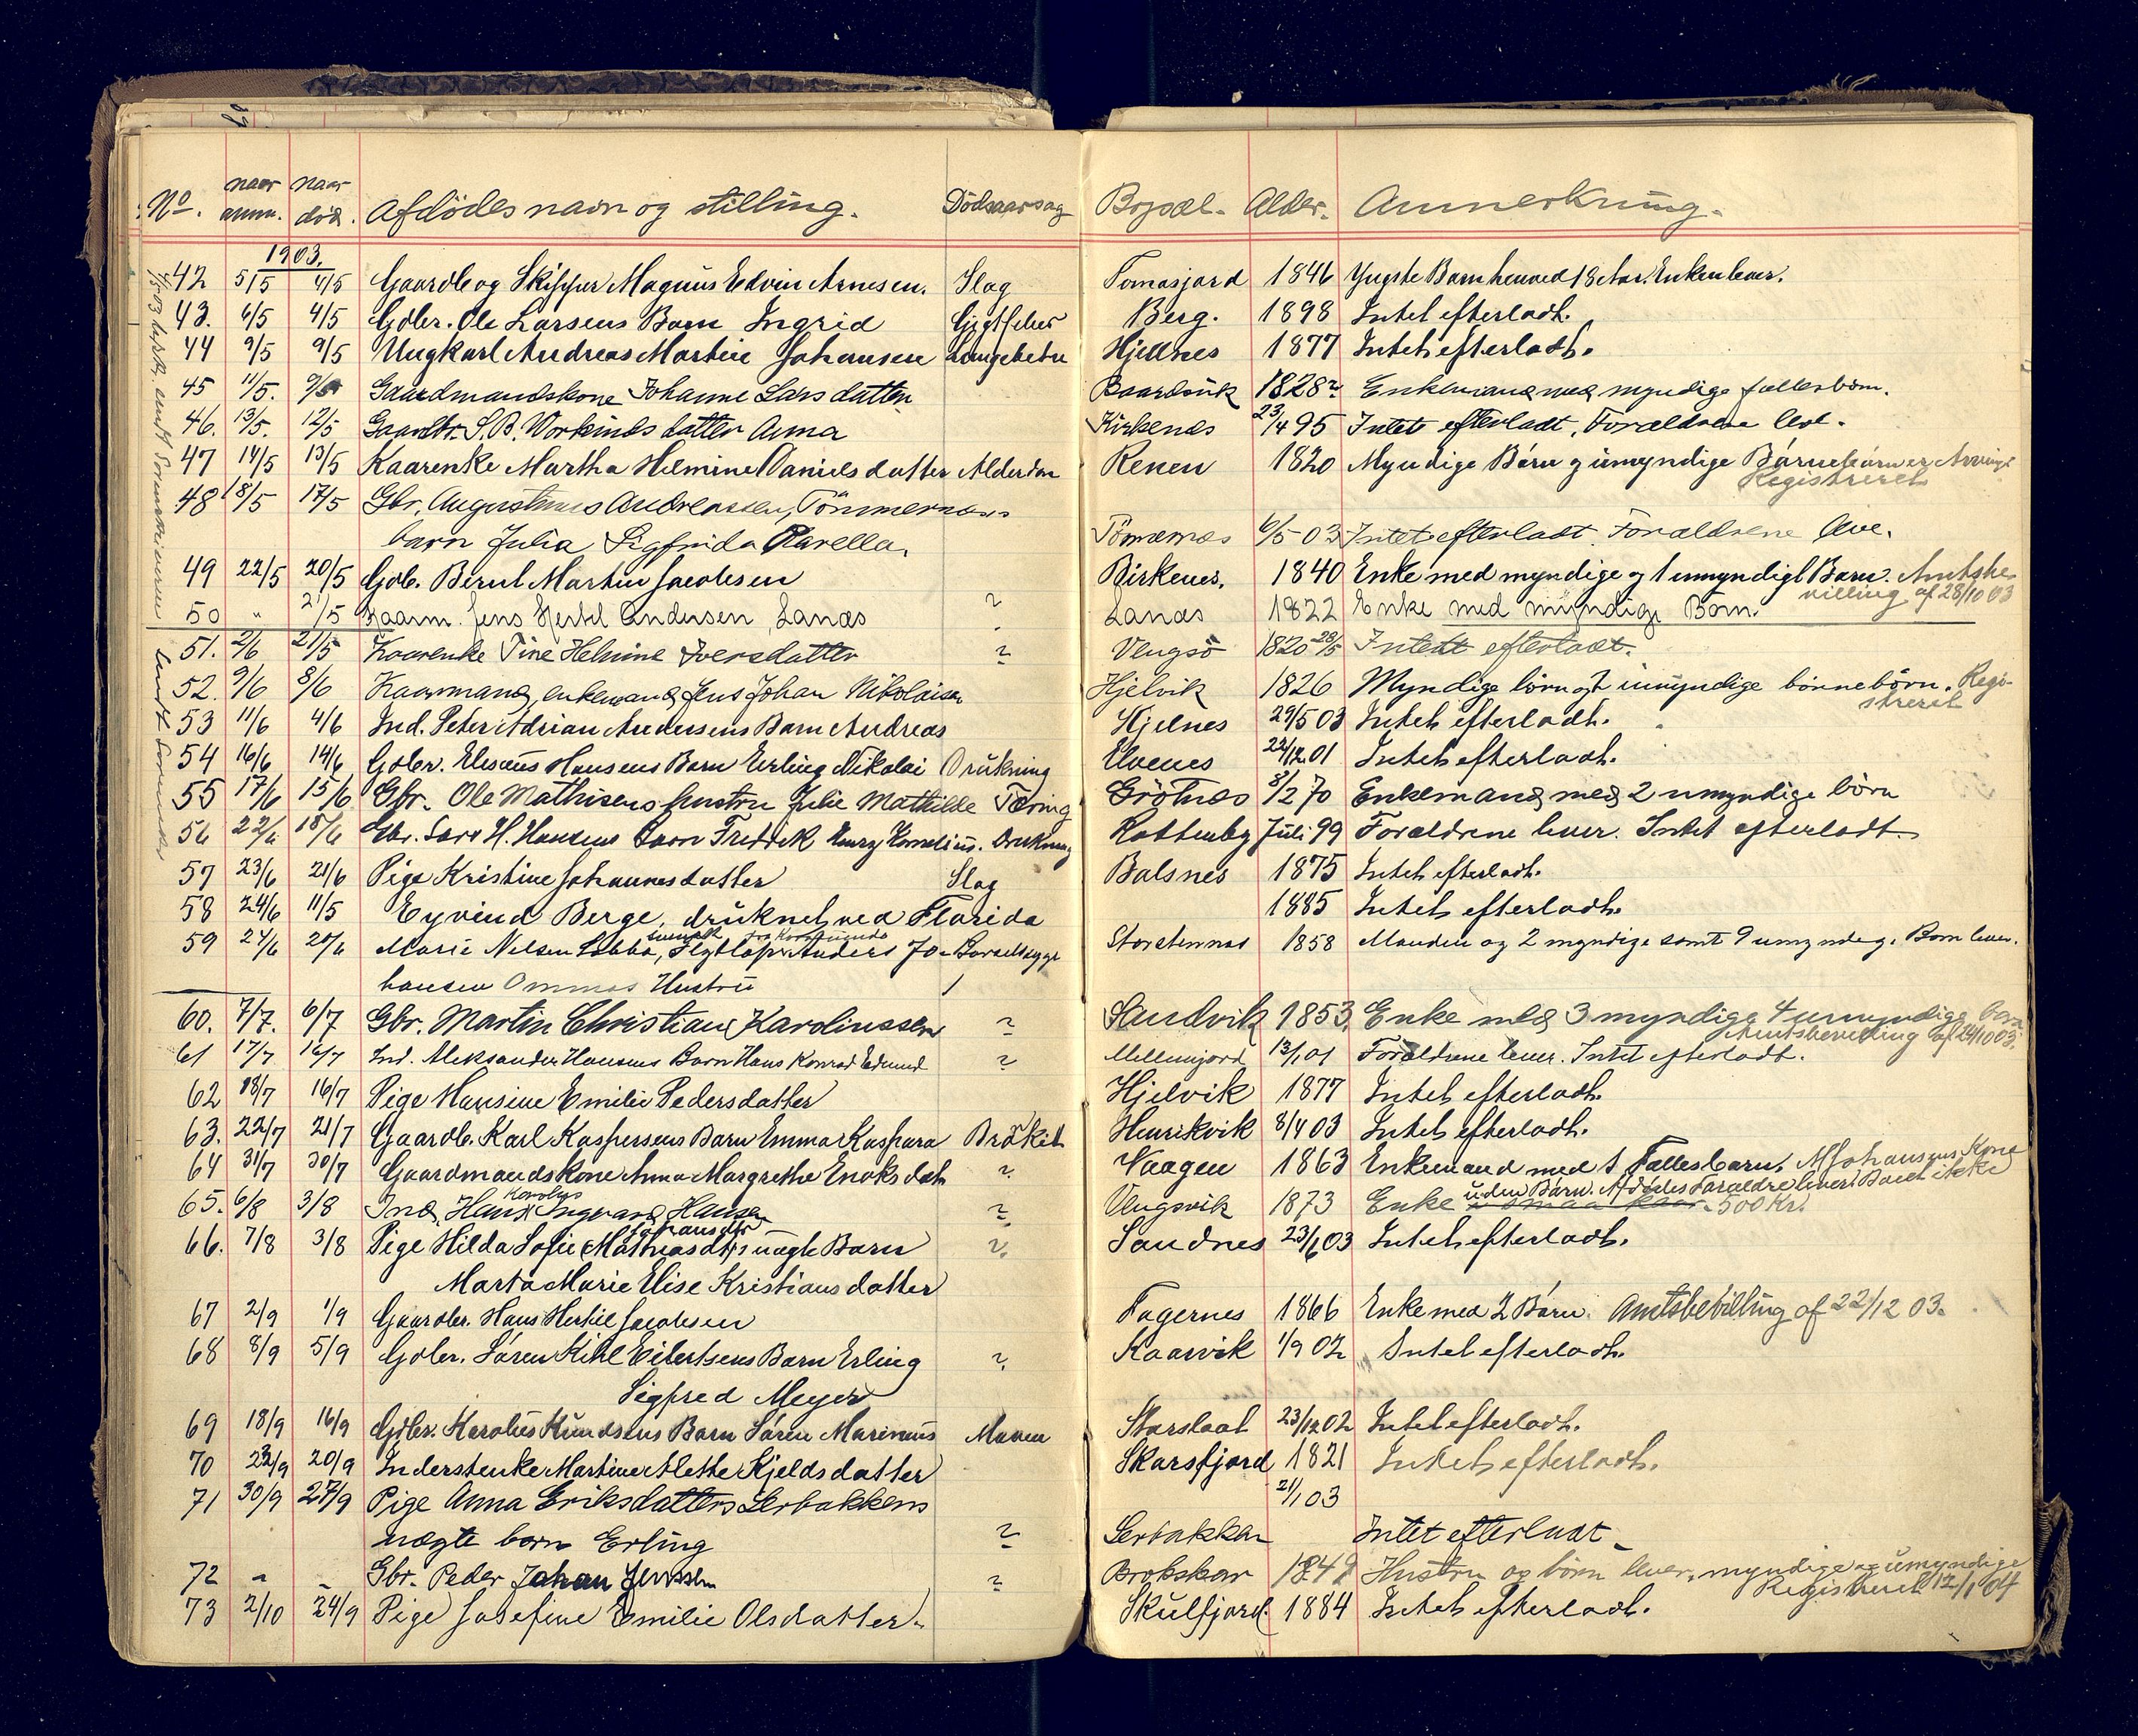 No. naar anm. naar død. Afdödes navn og stilling. Dödsaarsag Bopæl. Alder. Anmerkning.
1903.
42 5/5 4/5 Gaardb og Skipper Magnus Edvin Arnesen. Slag Tomasjord 1846 Yngste Barn henved 18 Aar. Enken lever.
43. 6/5 4/5 Gdbr. Ole Larsens Barn Ingrid Gigtfeber Berg. 1898 Intet efterladt.
44 9/5 9/5 Ungkarl Andreas Martin Johansen Lungebetn Hjellnes 1877 Intet efterladt.
45 11/5. 9/5 Gaardmandskone Johanne Larsdatter 1828? Enkemand med myndige fællesbörn.
46. 13/5. 12/5 Gaardbr. S. B. Workinds datter Anna Kirkenæs 23/4 95 Intet efterladt, Forældrene leve.
47 14/5 13/5 Kaarenke Martha Helmine Danielsdatter Alderdom Reken 1820 Myndige Børn og umyndige Børnebørn er
Registreret
48 18/5 17/5 Gbr. Augustinus Andreassen, Tömmernæs
barn Julia Sigfrida Pavella. Tömernæs 6/5 03 Intet efterladt. Forældrene leve.
49 22/5 20/5 Gdb. Bernt Martin Jacobsen Birkenes. 1840 Enke med myndige og 1 umyndigt Barn. Amtsbe-
villing af 28/10 03
50 " 21/5 Kaarm. Jens Hertel Andersen, Lanæs ? Lanæs 1822 Enke med myndige Börn.
51. 2/6 21/5 Kaarenke Tine Helmine Iversdatter ? Vengsö 1820 28/5 Intet efterladt.
52. 9/6 8/6 Kaarmand, enkemand Jens Johan Nikolaisen Hjelvik 1826 Myndige börn og umyndige börnebörn. Regi-
streret
53 11/6 4/6 Ind. Peter Adrian Andersens Barn Andreas Hjelnes 29/5 03 Intet efterladt.
54 16/6 14/6 Gdbr. Elesæus Hansens Barn Erling Nikolai Drukning Elvenes 22/12 01 Intet efterladt.
55 17/6 15/6 Gbr. Ole Mathisens hustru Julie Mathilde Tæring Grötnæs 8/2 70 Enkemand med 2 umyndige börn
56 22/6 18/6 Gbr. Lars H. Hansens Barn Fredrik Henry Kornelius. Drukning Kattenby Juli 99 Forældrene lever. Intet efterladt
57 23/6 21/6 Pige Kristine Johannesdatter Slag Balsnes 1875 Intet efterladt.
58 24/6 11/5 Eyvind Berge, druknet ved Florida 1885 Intet efterladt.
59 24/6 20/6 Marie Nilsen Labba, Flytlap Anders Jo- Storstennæs 1858 Manden og 2 myndige samt 9 umyndige Börn lever.
hansen Ommas Hustru
60. 7/7. 6/7 Gbr. Martin Christian Karolinssen ? Sandvik 1853. Enke med 3 myndige 4 umyndige børn
Amtsbevilling af 24/10 03.
61 17/7 16/7 Ind. Aleksander Hansens Barn Hans Konrad Edmund ? Mellemjord 13/1 01 Forældrene lever. Intet efterladt.
62 18/7 16/7 Pige Hansine Emilie Pedersdatter Hjelvik 1877 Intet efterladt.
63. 22/7 21/7 Gaardb. Karl Kaspersens Barn Emma Kaspara Bråkit Henrikvik 8/4 03 Intet efterladt.
64 31/7 30/7 Gaardmandskone Anna Margrethe Enoksdatt. ? Vaagen 1863 Enkemand med 1 Fællesbarn. M Johansens Kone
65. 6/8 3/8 Ind. Hans Karolus Ingvard Hansen ? Vengsvik 1873 Enke uden Barn. Afdødes Forældre lever. Boet ikke
500 Kr.
66. 7/8 3/8 Pige Hilda Sofie Mathiasdtrs Johansdtr uægte Barn ? Sandnes 23/6 03 Intet efterladt.
Marta Marie Elise Kristiansdatter
67 2/9 1/9 Gaardbr. Hans Hertel Jacobsen Fagernes 1866 Enke med 2 Børn. Amtsbevilling af 22/12 03.
68 8/9 5/9 Gdbr. Søren Kihl Eilertsens Barn Erling ? Kaarvik 1/9 02 Intet efterladt.
Sigfred Meyer
69 18/9 16/9 Gdbr. Karolus Knudsens Barn Søren Marinus Maven 23/12 02 Intet efterladt.
70 22/9 20/9 Inderstenke Martine Mette Kjeldsdatter Skarsfjord 1821 Intet efterladt.
71 30/9 27/9 Pige Anna Eriksdatters Lerbakkens 21/1 03
uægte barn Erling ? Lerbakken Intet efterladt
72 - - Gbr. Peder Johan Jenssen ? Brokskar 1849 Hustru og börn lever, myndige og umyndige
Registreret 12/1 04
73 2/10 24/9 Pige Josefine Emilie Olsdatter. Skulfjord. 1884 Intet efterladt.